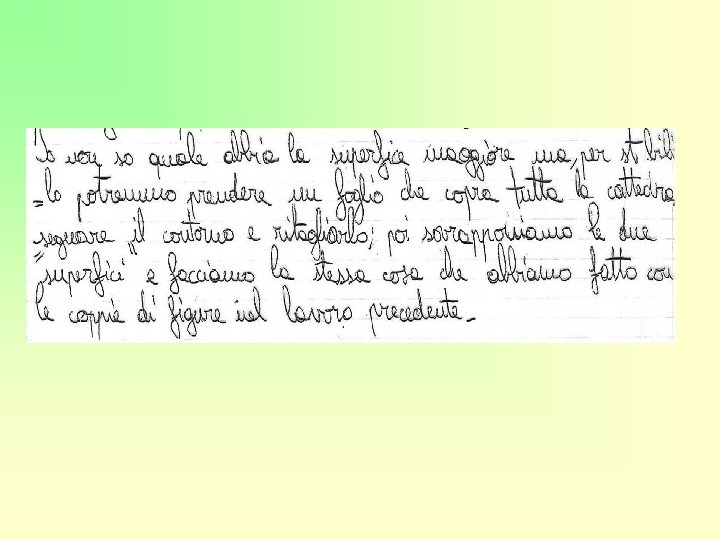 Io non so quale abbia la superfice maggiore ma, per st bili
=lo potremmo prendere un foglio che copra tutta la cattedra,
segnare il contorno e ritagliarlo; poi sovrapponiamo le due
"superfici" e facciamo la stessa cosa che abbiamo fatto con
le coppie di figure nel lavoro precedente.